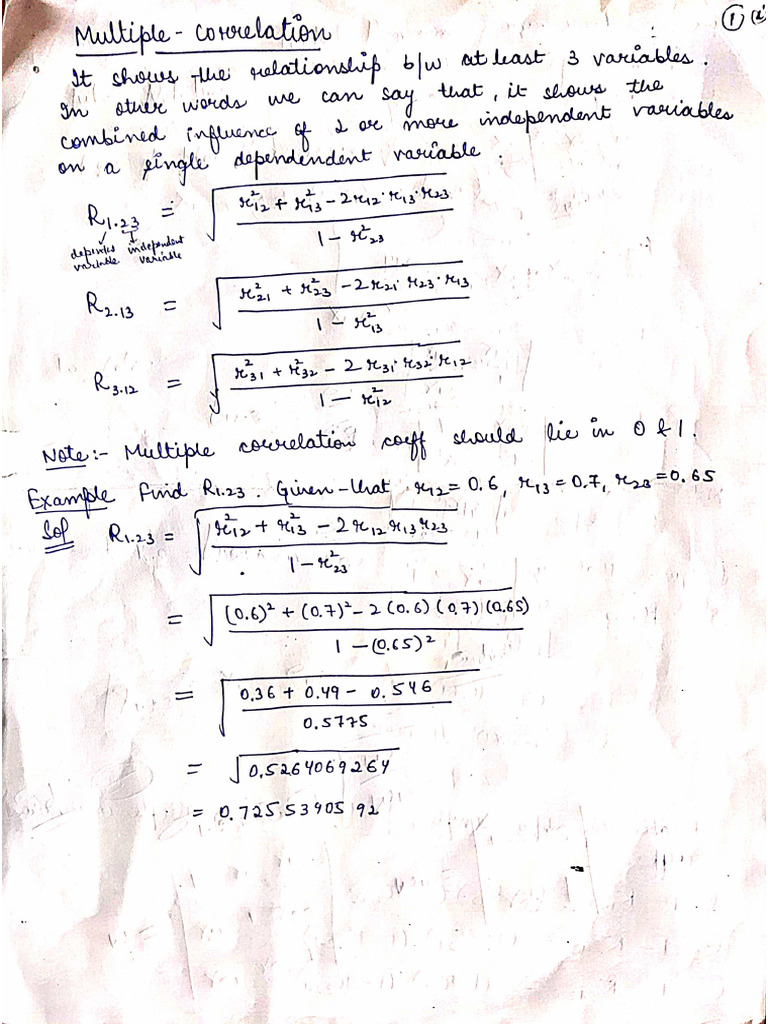 ① (i)
Multiple - correlation
It shows the relationship b/w at least 3 variables.
In other words we can say that, it shows the
combined influence of 2 or more independent variables
on a single dependendent variable.
R₁.₂₃ = √((r²₁₂ + r²₁₃ - 2r₁₂·r₁₃·r₂₃)/(1 - r²₂₃))
independent
variable variable
R₂.₁₃ = √((r²₂₁ + r²₂₃ - 2r₂₁·r₂₃·r₁₃)/(1 - r²₁₃))
R₃.₁₂ = √((r²₃₁ + r²₃₂ - 2r₃₁·r₃₂·r₁₂)/(1 - r²₁₂))
Note:- Multiple correlation coeff should lie in 0 & 1.
Example Find R₁.₂₃. Given that r₁₂ = 0.6, r₁₃ = 0.7, r₂₃ = 0.65
Sol R₁.₂₃ = √((r²₁₂ + r²₁₃ - 2r₁₂r₁₃r₂₃)/(1 - r²₂₃))
= √(((0.6)² + (0.7)² - 2(0.6)(0.7)(0.65))/(1 - (0.65)²))
= √((0.36 + 0.49 - 0.546)/0.5775)
= √0.5264069264
= 0.7255390592